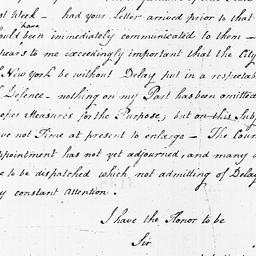 st Week – had your Letter arrived prior to that
have
ould been immediately communicated to them –
pears to me exceedingly important that the City
f New York be without Delay put in a respectab
f Defence – nothing on my Part has been omitted
oper Measures for the Purpose; but on this Subj
ve not Time at present to enlarge – The Coun
ppointment has not yet adjourned, and many o
e to be dispatched which not admitting of Delay
y constant Attention.
I have the Honor to be
Sir